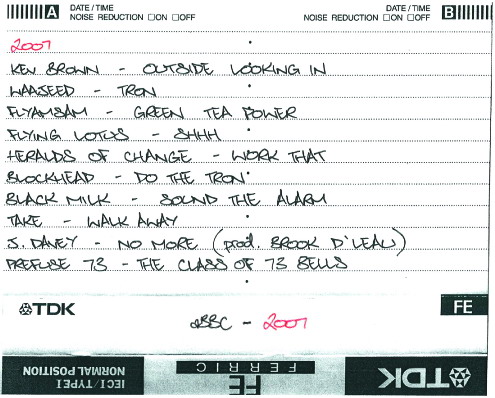 A DATE/TIME
NOISE REDUCTION □ON □OFF
DATE/TIME B
NOISE REDUCTION □ON □OFF
2007
KEN BROWN - OUTSIDE LOOKING IN
WAAJEED - TRON
FLYAMSAM - GREEN TEA POWER
FLYING LOTUS - SHHH
HERALDS OF CHANGE - WORK THAT
BLOCKHEAD - DO THE TRON
BLACK MILK - SOUND THE ALARM
TAKE - WALK AWAY
J. DAVEY - NO MORE (prod. BROOK D'LEAU)
PREFUSE 73 - THE CLASS OF 73 BELLS
TDK
FE
2007
TDK
FERRIC
FE
IECI/TYPE I
NORMAL POSITION